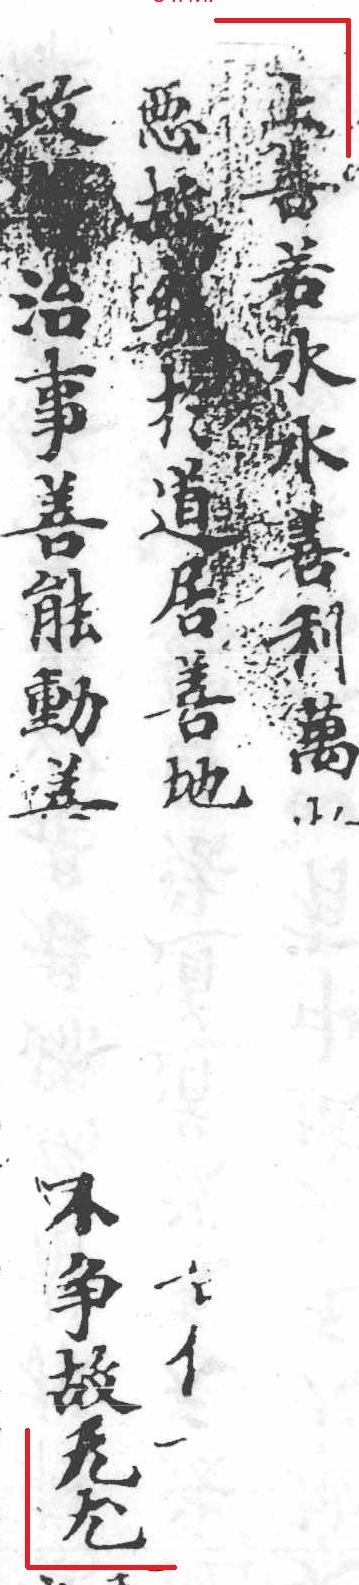 上善若水水善利萬
惡故幾扵道居善地
政治事善能動善不争故无尤